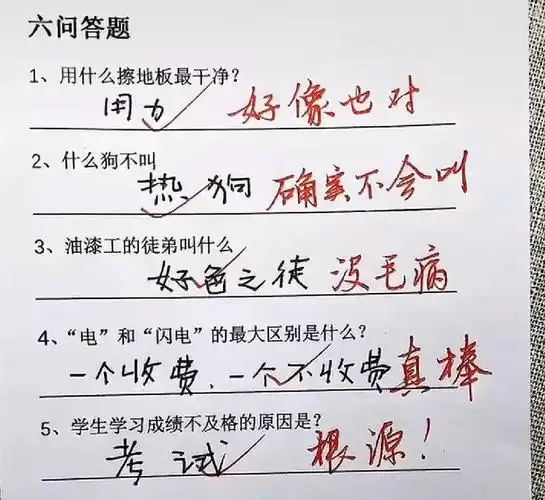 六问答题
1、用什么擦地板最干净？
用力 好像也对
2、什么狗不叫
热狗 确实不会叫
3、油漆工的徒弟叫什么
好色之徒 没毛病
4、“电”和“闪电”的最大区别是什么？
一个收费，一个不收费 真棒
5、学生学习成绩不及格的原因是？
考试 根源！